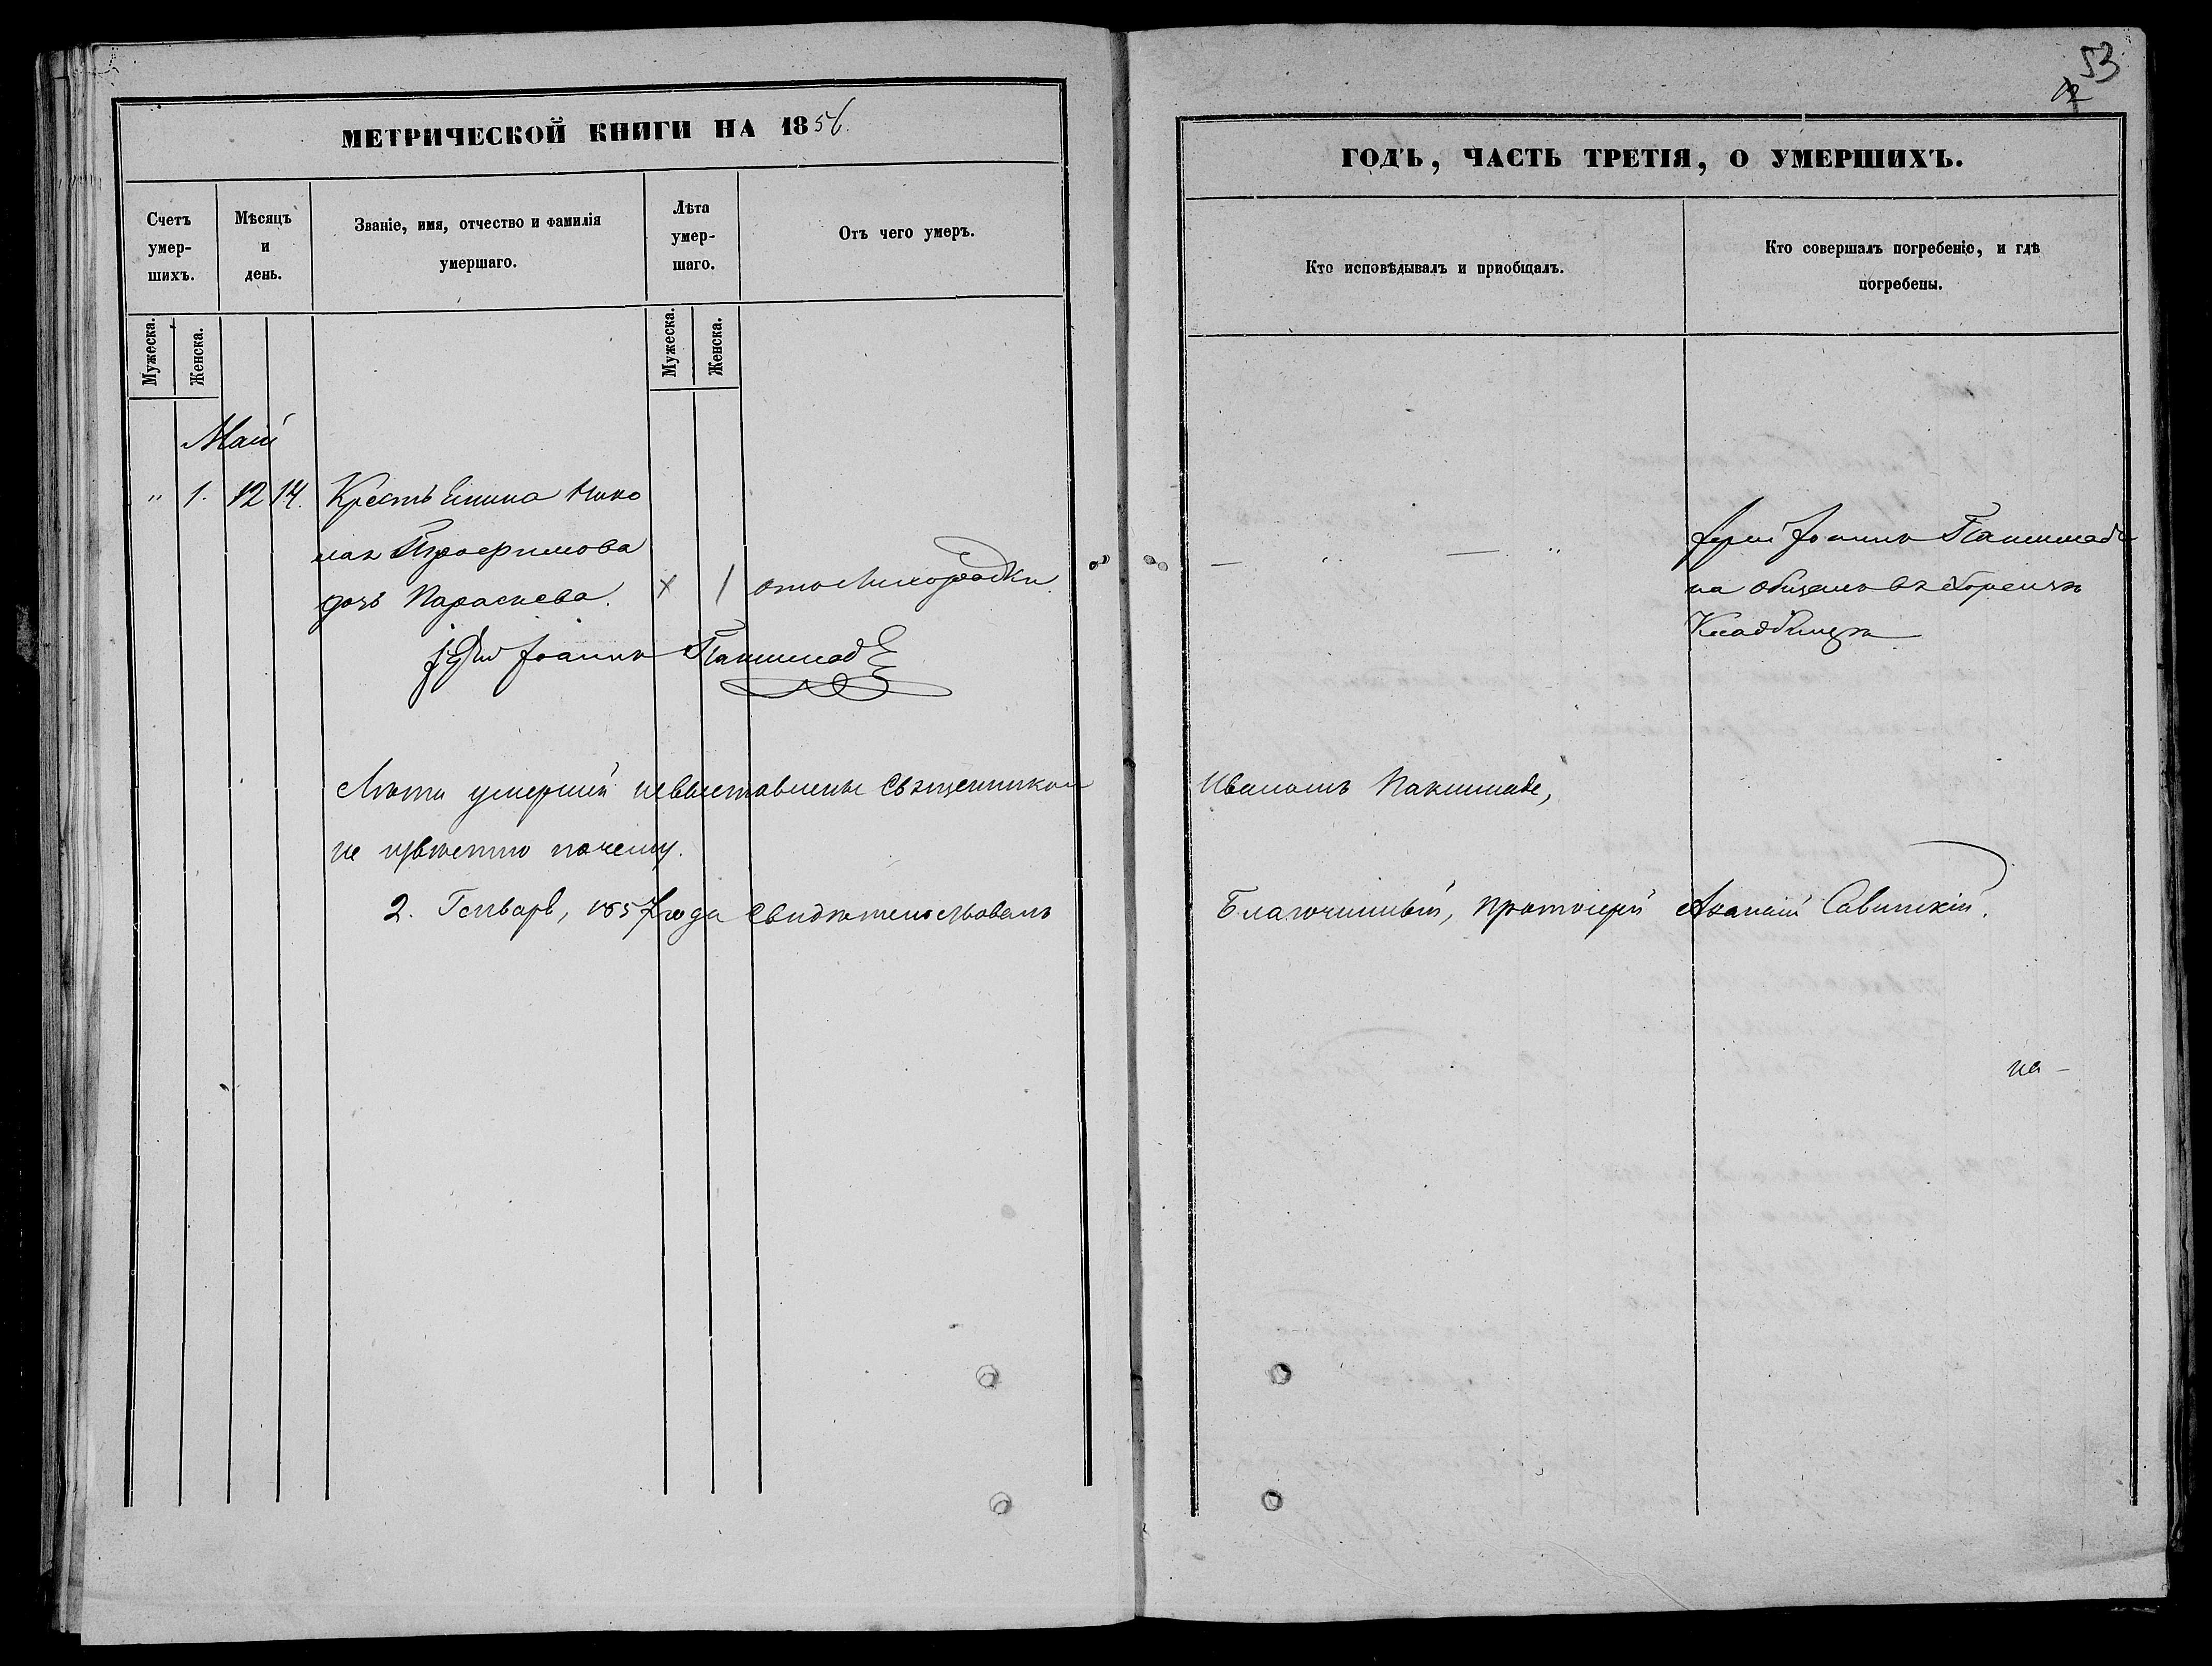 53
МЕТРИЧЕСКОЙ КНИГИ НА 1856.
ГОДЪ, ЧАСТЬ ТРЕТІЯ, О УМЕРШИХЪ.
Счетъ умер-шихъ.
Мѣсяцъ и день.
Званіе, имя, отчество и фамилія умершаго.
Лѣта умер-шаго.
Отъ чего умеръ.
Кто исповѣдывалъ и приобщалъ.
Кто совершалъ погребеніе, и гдѣ погребены.
Мужеска.
Женска.
Мужеска.
Женска.
Май
" 1. 12 14. Крестьянина Нико
лая Трофимова
дочь Параскева. 1 отъ Лихорадки.
Іерей Іоаннъ
на общемъ
Кладбищѣ
Іерей Іоаннъ
Лѣта умершей невыставлены Священникомъ Иваномъ
не извѣстно почему.
2. Генваря, 1857 года свидѣтельствовалъ Благочинный, протоіерей Савитскій.
на -